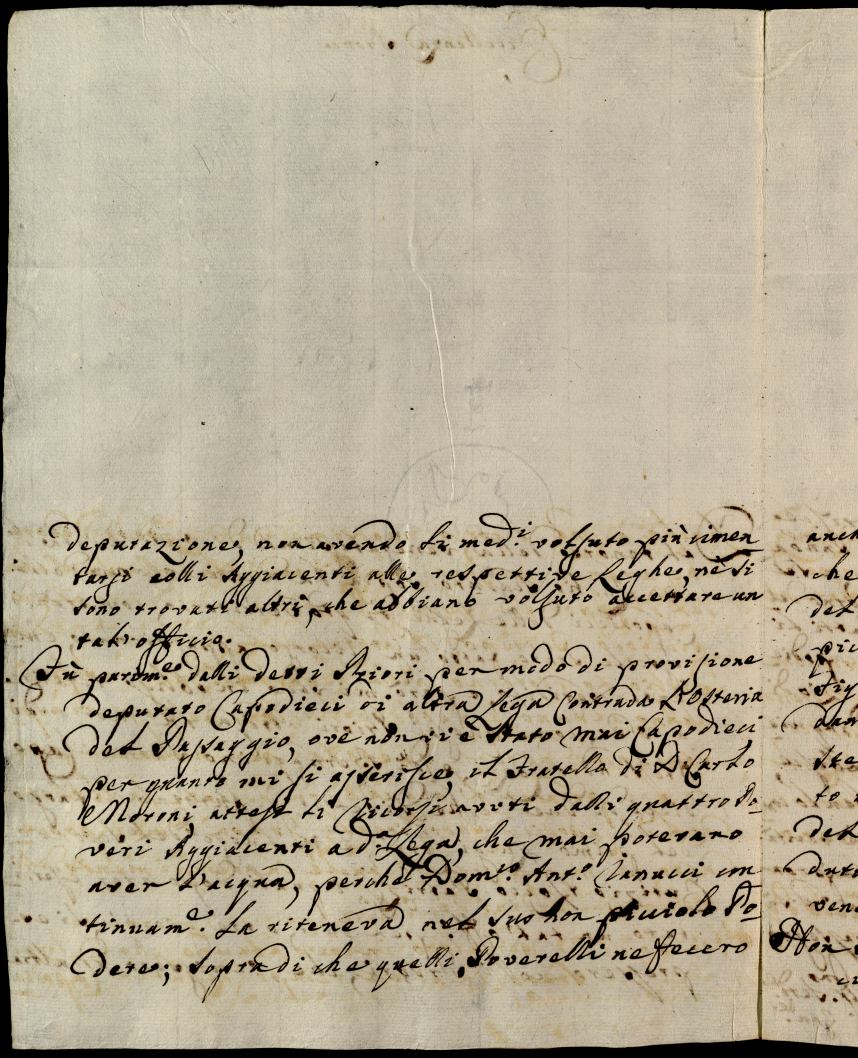 deputazione, non avendo li med.i volsuto più cimen
tarsi colli Aggiacenti alle respettive Leghe, nè si
sono trovati altri, che abbiano volsuto accettare un
tal officio.
Fù parim.e dalli detti Priori per modo di provisione
deputato Capodieci di altra Lega Contrada L'Osteria
del Passaggio, ove non vi è stato mai Capodieci
per quanto mi si asserisce, il Fratello di D. Carlo
Moroni attesi li ricorsi avuti dalli quattro Po-
veri Aggiacenti a d.a Lega, che mai potevano
aver l'acqua, perchè Dom.co Ant.o Ianucci con
tinuam.e la riteneva nel suo non picciolo Po-
dere; sopra di che quelli Poverelli ne fecero
che
del
to
del
ven
Non